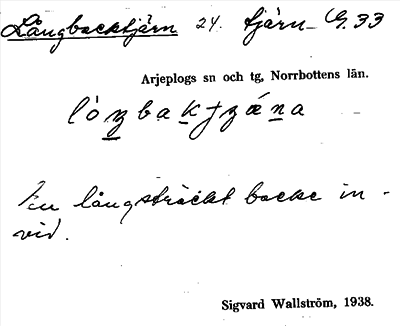 Långbacktjärn 24. tjärn – G. 33
Arjeplogs sn och tg, Norrbottens län.
En långsträckt backe in-
vid.
Sigvard Wallström, 1938.